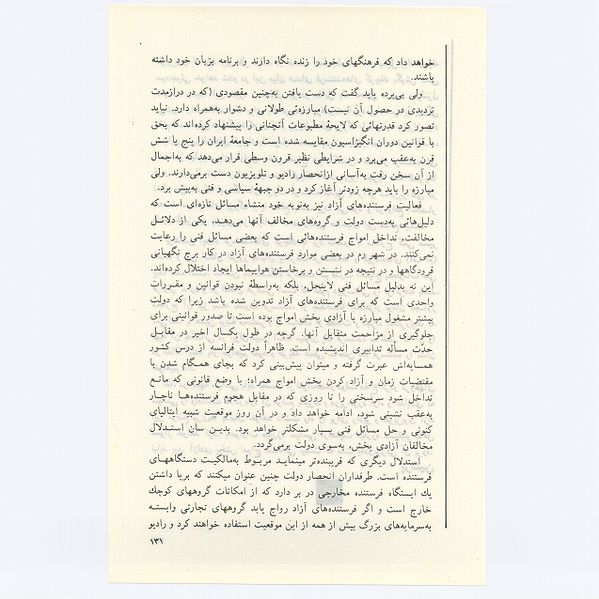 خواهد داد که فرهنگهای خود را زنده نگاه دارند و برنامه بزبان خود داشته
باشند.
ولی بی‌پرده باید گفت که دست یافتن به‌چنین مقصودی (که در درازمدت
تردیدی در حصول آن نیست) مبارزه‌ئی طولانی و دشوار به‌همراه دارد. نباید
تصور کرد قدرتهائی که لایحهٔ مطبوعات آنچنانی را پیشنهاد کرده‌اند که بحق
با قوانین دوران انگیزاسیون مقایسه شده است و جامعهٔ ایران را پنج یا شش
قرن به‌عقب می‌برد و در شرایطی نظیر قرون وسطی قرار می‌دهد که به‌اجمال
از آن سخن رفت به‌آسانی ازانحصار رادیو و تلویزیون دست برمی‌دارند. ولی
مبارزه را باید هرچه زودتر آغاز کرد و در دو جبههٔ سیاسی و فنی به‌پیش برد.
فعالیت فرستنده‌های آزاد نیز به‌نوبه خود منشاء مسائل تازه‌ای است که
دلیل‌هائی به‌دست دولت و گروه‌های مخالف آنها می‌دهد. یکی از دلائل
مخالفت، تداخل امواج فرستنده‌هائی است که بعضی مسائل فنی را رعایت
نمی‌کنند. در شهر رم در بعضی موارد فرستنده‌های آزاد در کار برج نگهبانی
فرودگاهها و در نتیجه در نشستن و برخاستن هواپیماها ایجاد اختلال کرده‌اند.
این نه بدلیل مسائل فنی لاینحل، بلکه به‌واسطهٔ نبودن قوانین و مقررات
واحدی است که برای فرستنده‌های آزاد تدوین شده باشد زیرا که دولت
بیشتر مشغول مبارزه با آزادی پخش امواج بوده است تا صدور قوانینی برای
جلوگیری از مزاحمت متقابل آنها. گرچه در طول یکسال اخیر در مقابل
حدّت مسأله تدابیری اندیشیده است. ظاهراً دولت فرانسه از درس کشور
همسایه‌اش عبرت گرفته و میتوان پیش‌بینی کرد که بجای همگام شدن با
مقتضیات زمان و آزاد کردن پخش امواج همراه؛ با وضع قانونی که مانع
تداخل شود سرسختی را تا روزی که در مقابل هجوم فرستنده‌ها ناچار
به‌عقب نشینی شود، ادامه خواهد داد و در آن روز موقعیت شبیه ایتالیای
کنونی و حل مسائل فنی بسیار مشکلتر خواهد بود. بدین سان استدلال
مخالفان آزادی پخش، به‌سوی دولت برمی‌گردد.
استدلال دیگری که فریبنده‌تر مینماید مربوط به‌مالکیت دستگاههای
فرستنده است. طرفداران انحصار دولت چنین عنوان میکنند که برپا داشتن
یك ایستگاه فرستنده مخارجی در بر دارد که از امکانات گروههای کوچك
خارج است و اگر فرستنده‌های آزاد رواج یابد گروههای تجارتی وابسته
به‌سرمایه‌های بزرگ بیش از همه از این موقعیت استفاده خواهند کرد و رادیو
۱۳۱